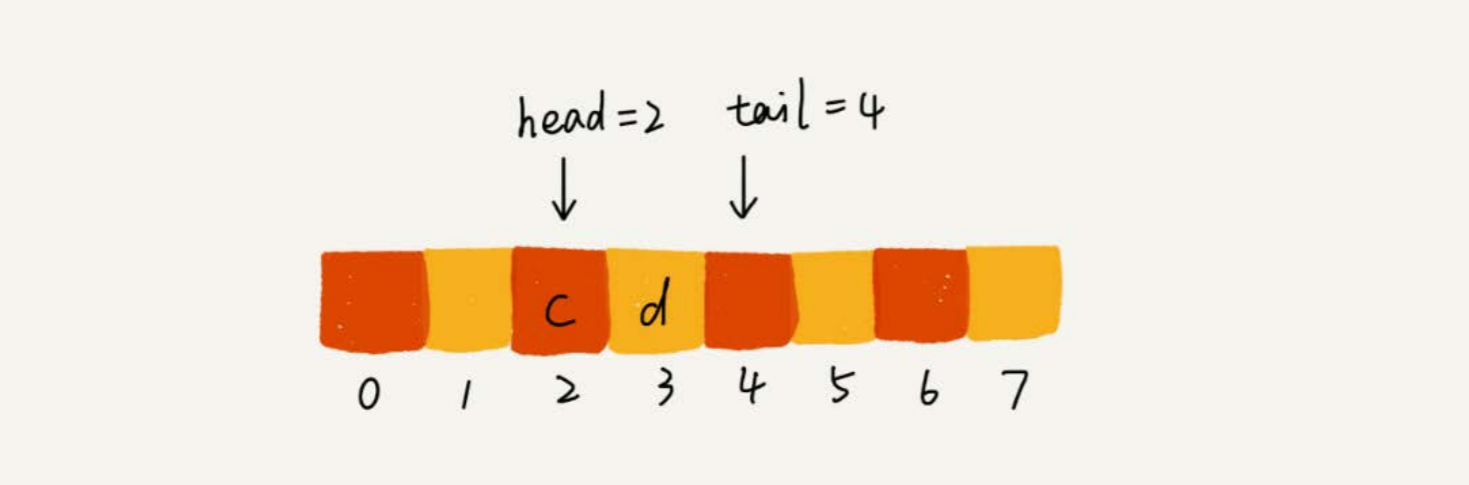 head=2 tail=4
c d
0 1 2 3 4 5 6 7